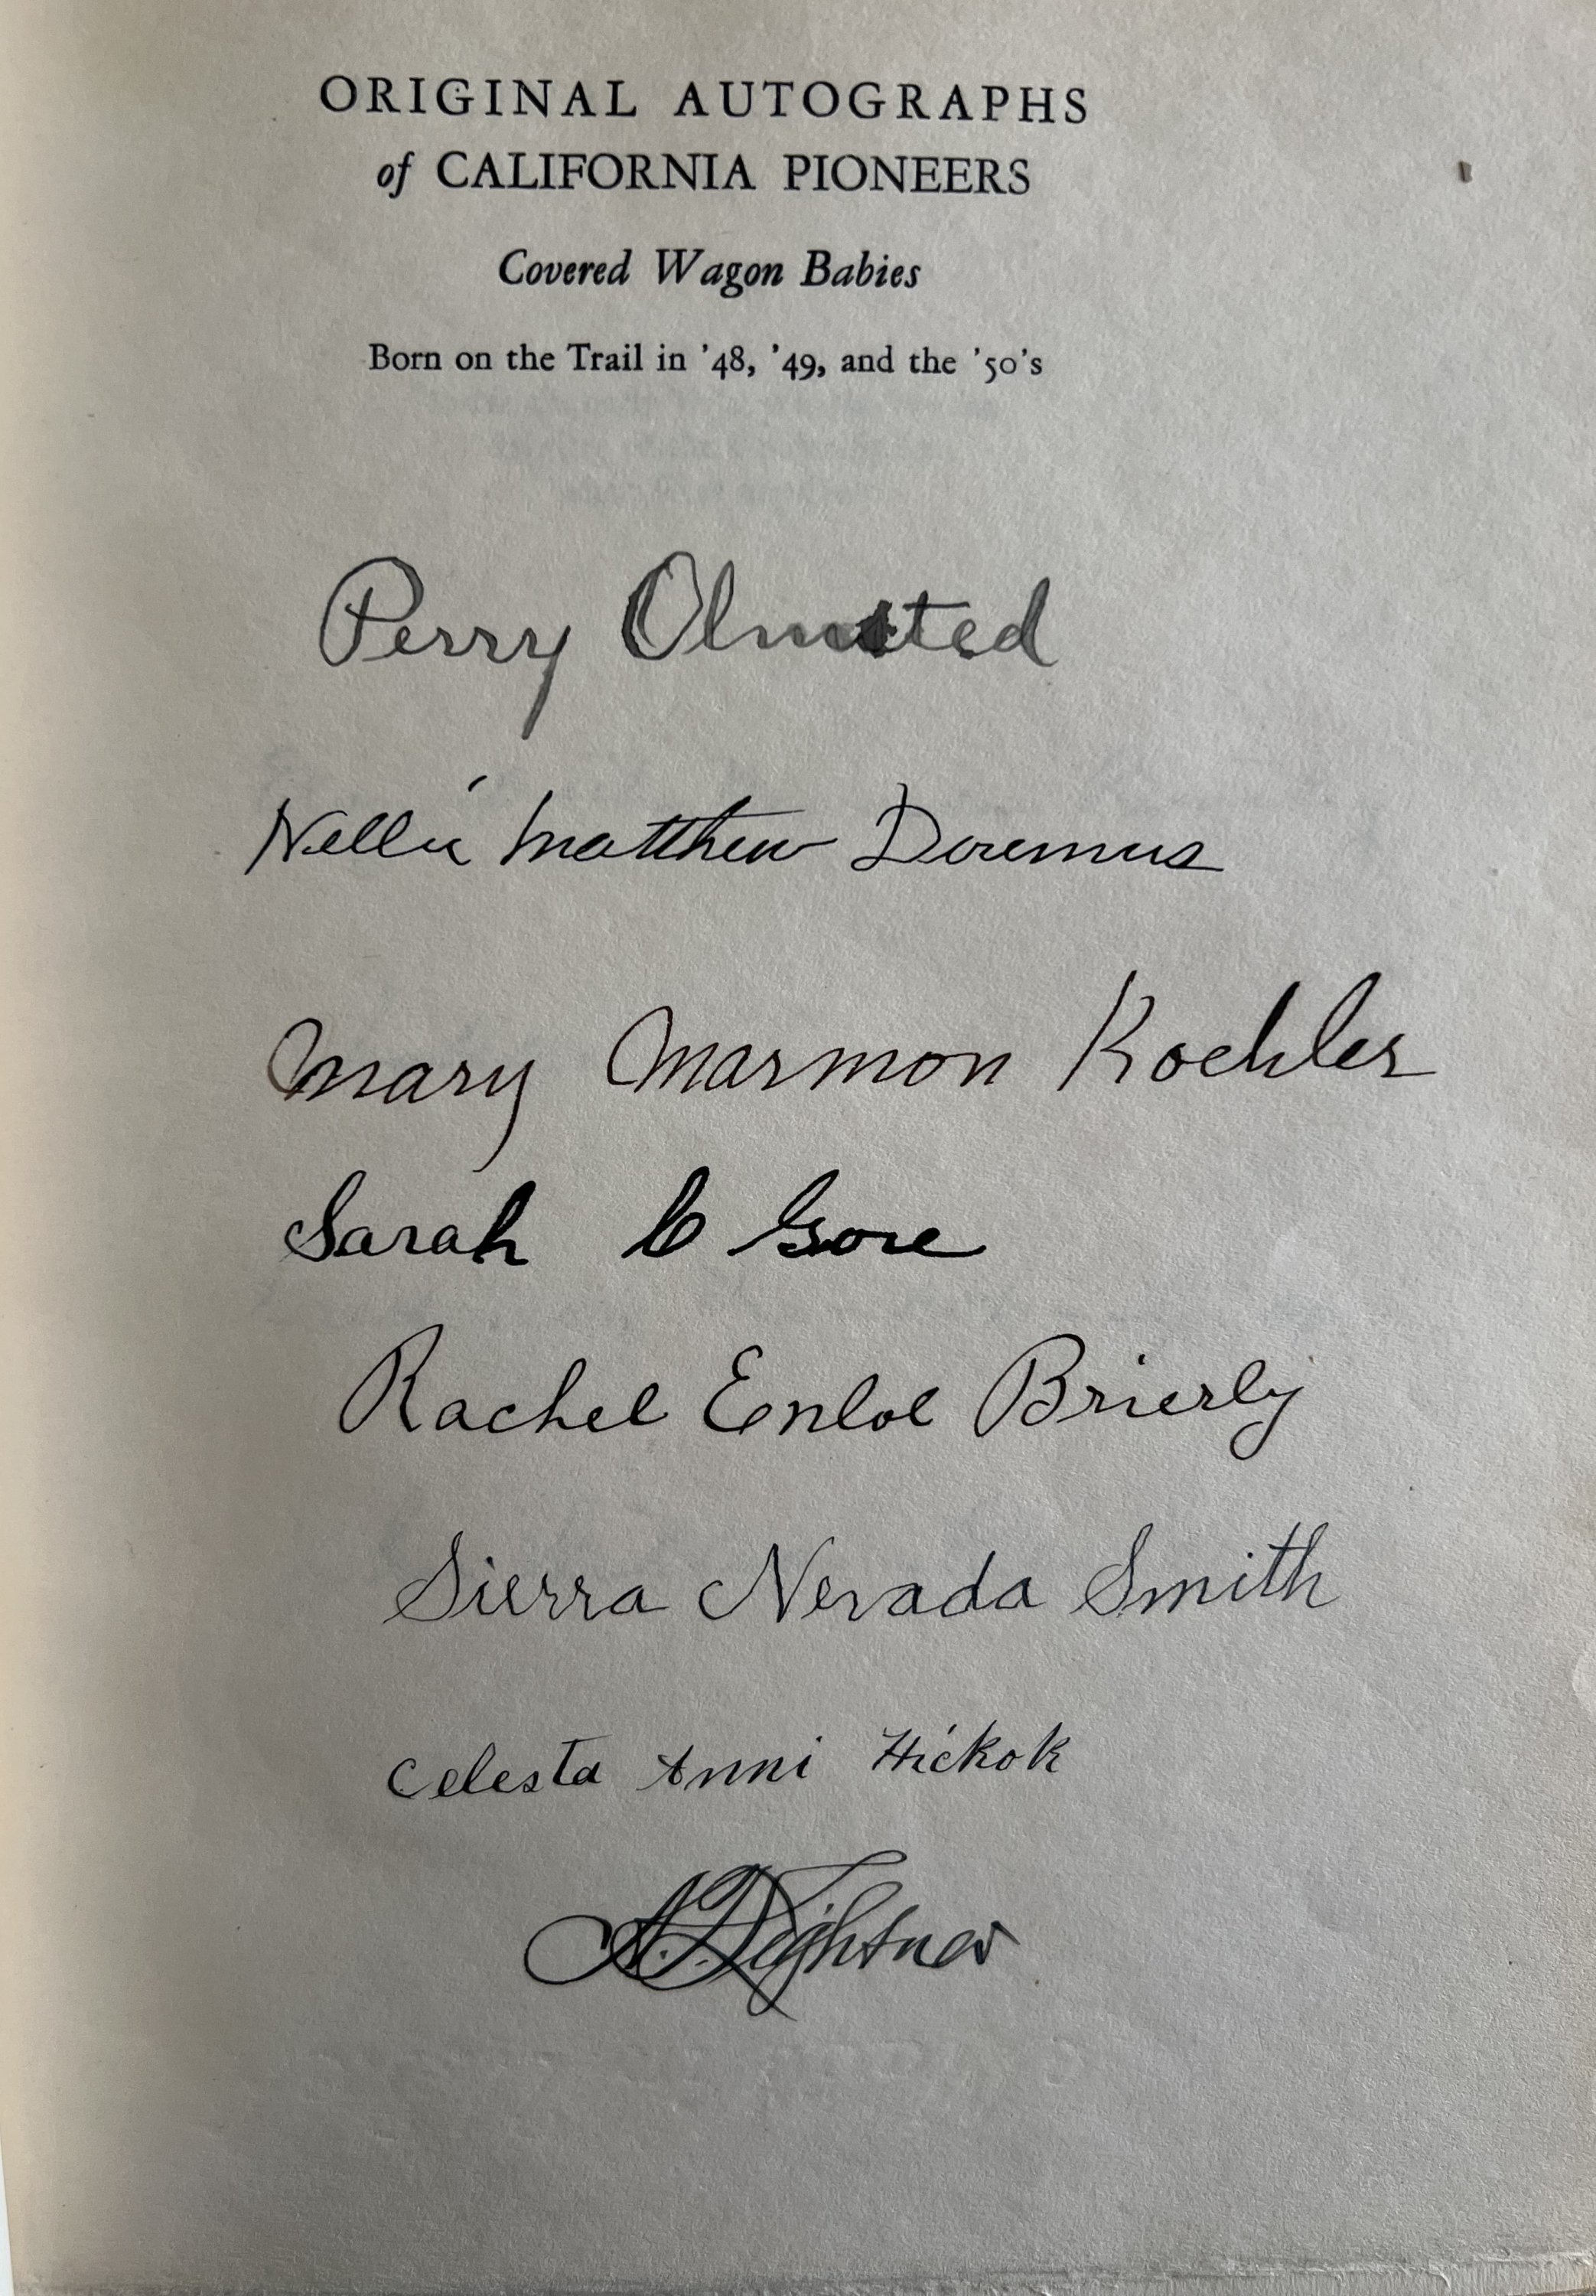 ORIGINAL AUTOGRAPHS
of CALIFORNIA PIONEERS
Covered Wagon Babies
Born on the Trail in '48, '49, and the '50's
Perry Olmsted
Nellie Matthew Doremus
Mary Marmon Koehler
Sarah C Gore
Rachel Enloe Brierly
Sierra Nevada Smith
Celesta Anni Hickok
A. D. Lightner